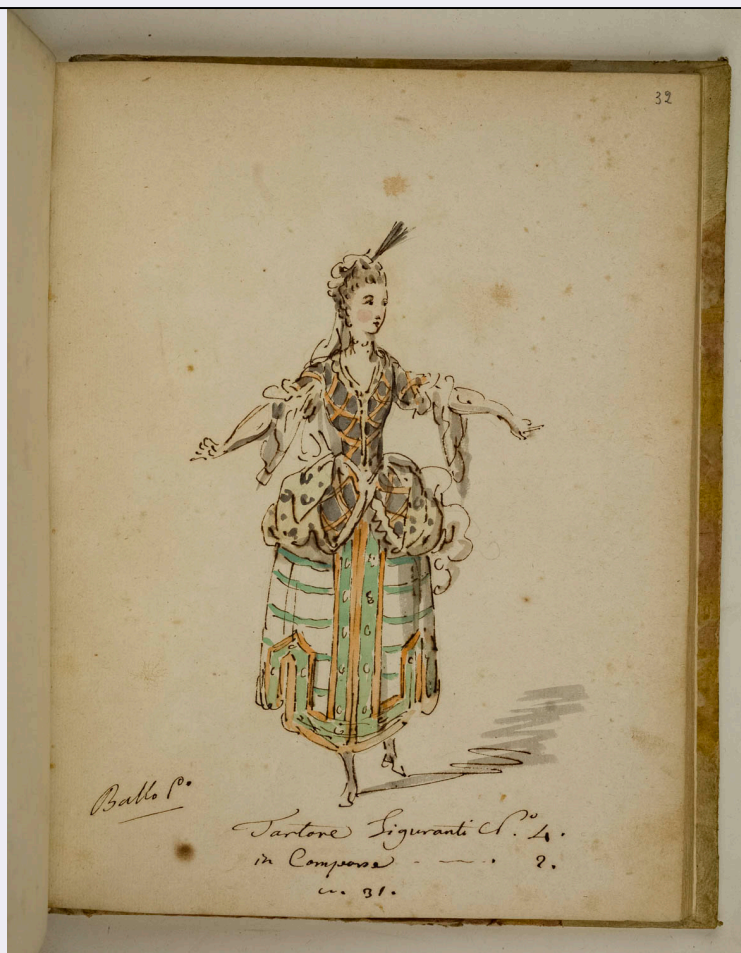 32
Ballo P.º
Tartore Figuranti N.º 4.
in Comparse - — . 2.
31.